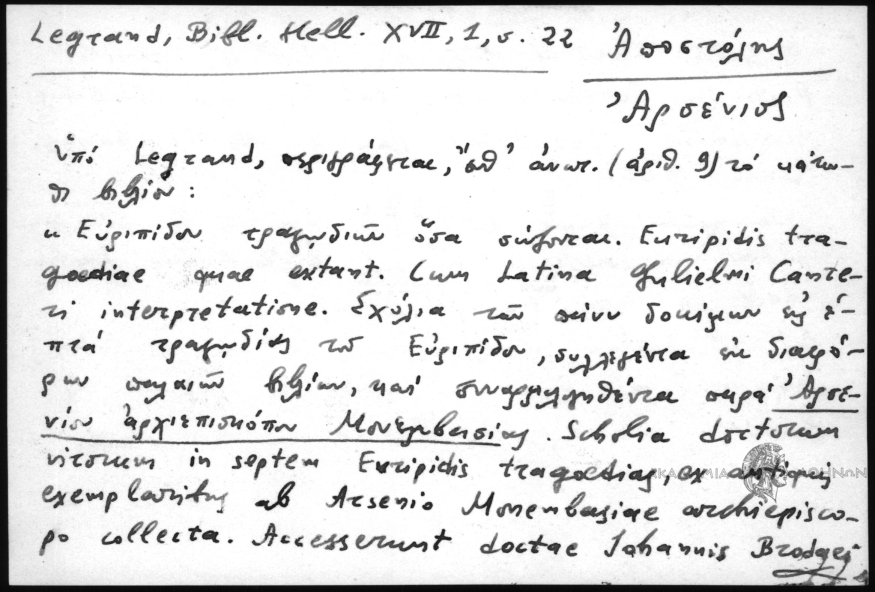 Legrand, Bibl. Hell. XVII, 1, σ. 22 Ἀποστόλης
Ἀρσένιος
ὑπό Legrand, περιγράφεται, ἔνθ' ἀνωτ. (ἀριθ. 9) τό κάτω-
θι βιβλίον:
« Εὐριπίδου τραγῳδιῶν ὅσα σώζονται. Euripidis tra-
goediae quae extant. Cum Latina Gulielmi Cante-
ri interpretatione. Σχόλια τῶν πάνυ δοκίμων εἰς ἑ-
πτά τραγῳδίας τοῦ Εὐριπίδου, συλλεγέντα ἐκ διαφό-
ρων παλαιῶν βιβλίων, καί συναρμολογηθέντα παρά Ἀρσε-
νίου ἀρχιεπισκόπου Μονεμβασίας. Scholia doctorum
virorum in septem Euripidis tragoedias, ex antiquis
ΑΚΑΔΗΜΙΑ ΑΘΗΝΩΝ
exemplaribus ab Arsenio Monembasiae archiepisco-
po collecta. Accesserunt doctae Johannis Brodaei